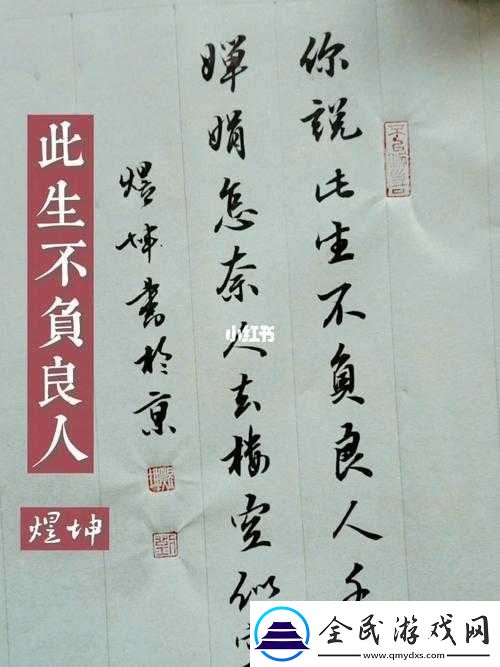 你說此生不負良人千
嬋娟怎奈人去樓空似
煜坤書於京
此生不負良人
煜坤
小红书
全民游戏网
www.qmydxs.com